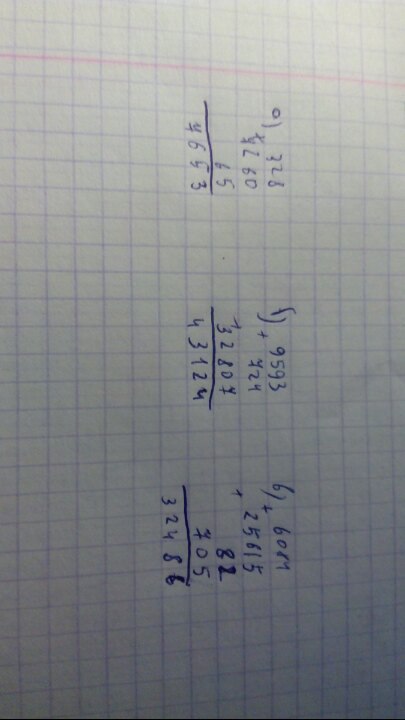 а) 328
+ 4260
65
4653
б) 9593
+ 724
+ 32807
43124
в) 6084
+
+ 25615
82
705
32486